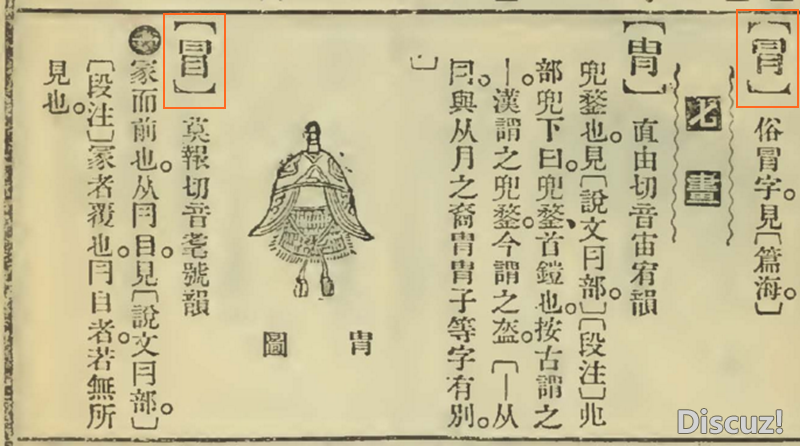 【冐】俗冐字。見〔篇海〕
七畫
【冑】直由切音宙宥韻
兜鍪也。見〔說文冃部〕。〔段注〕兆
部兜下曰。兜鍪、首鎧也。按古謂之
―漢謂之兜鍪。今謂之盔。〔―从
冃。與从月之裔胄胄子等字有別。
〕
冑圖
【冒】莫報切音耄號韻
冡而前也。从冃目。見〔說文冃部〕。
〔段注〕冡者覆也。冃目者。若無所
見也。
Discuz!